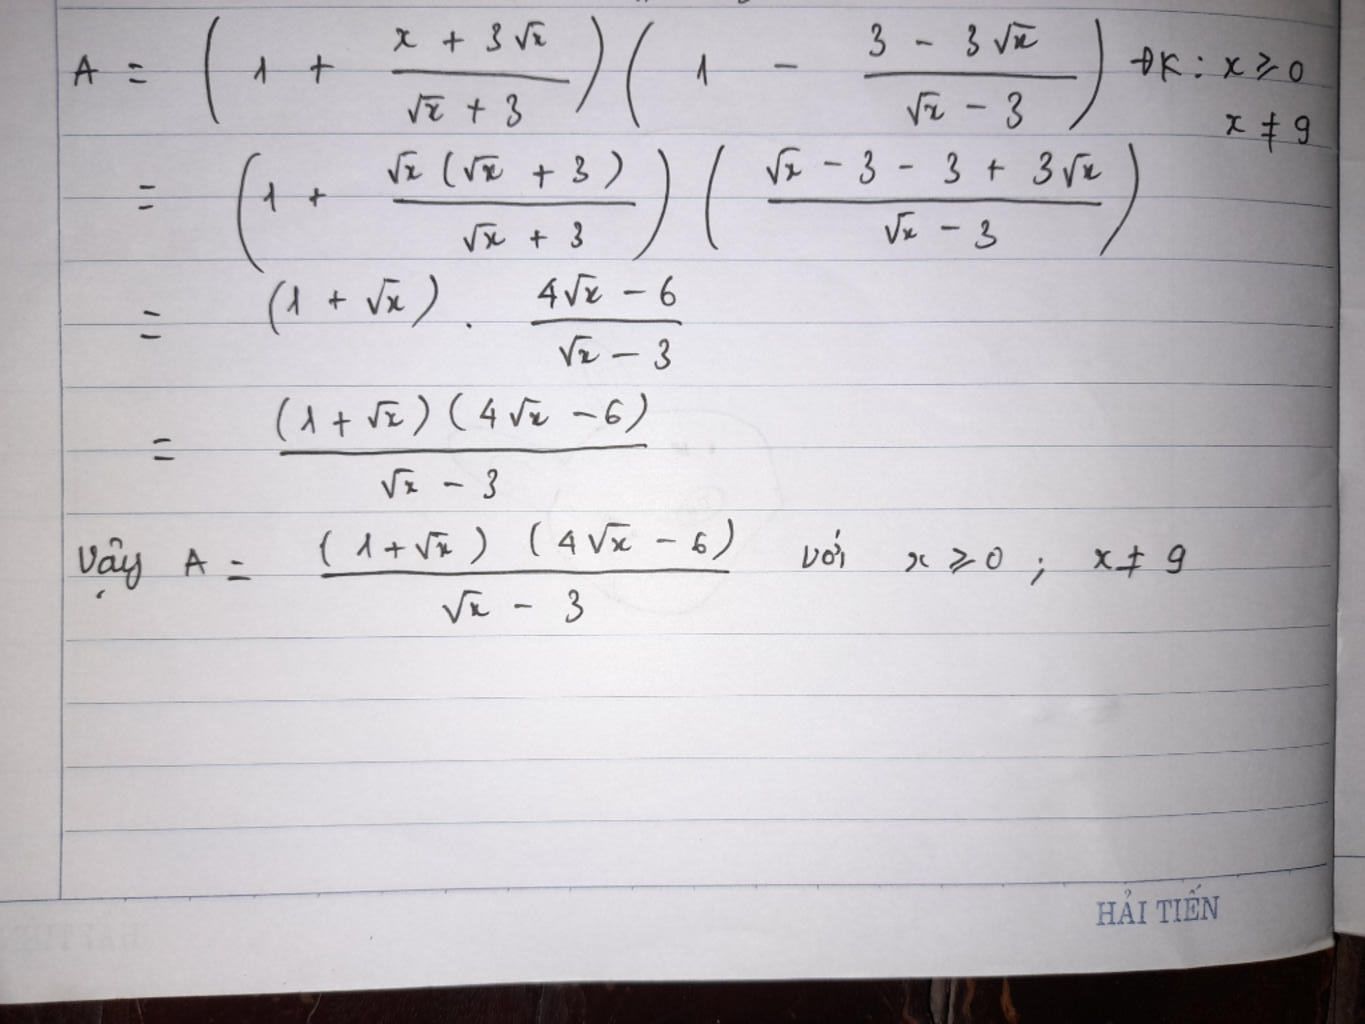 A = (1 + \frac{x + 3\sqrt{x}}{\sqrt{x} + 3})(1 - \frac{3 - 3\sqrt{x}}{\sqrt{x} - 3}) ĐK: x ⩾ 0
x ≠ 9
= (1 + \frac{\sqrt{x}(\sqrt{x} + 3)}{\sqrt{x} + 3})(\frac{\sqrt{x} - 3 - 3 + 3\sqrt{x}}{\sqrt{x} - 3})
= (1 + \sqrt{x}) . \frac{4\sqrt{x} - 6}{\sqrt{x} - 3}
= \frac{(1 + \sqrt{x})(4\sqrt{x} - 6)}{\sqrt{x} - 3}
Vậy A = \frac{(1 + \sqrt{x})(4\sqrt{x} - 6)}{\sqrt{x} - 3} với x ⩾ 0 ; x ≠ 9
HẢI TIẾN